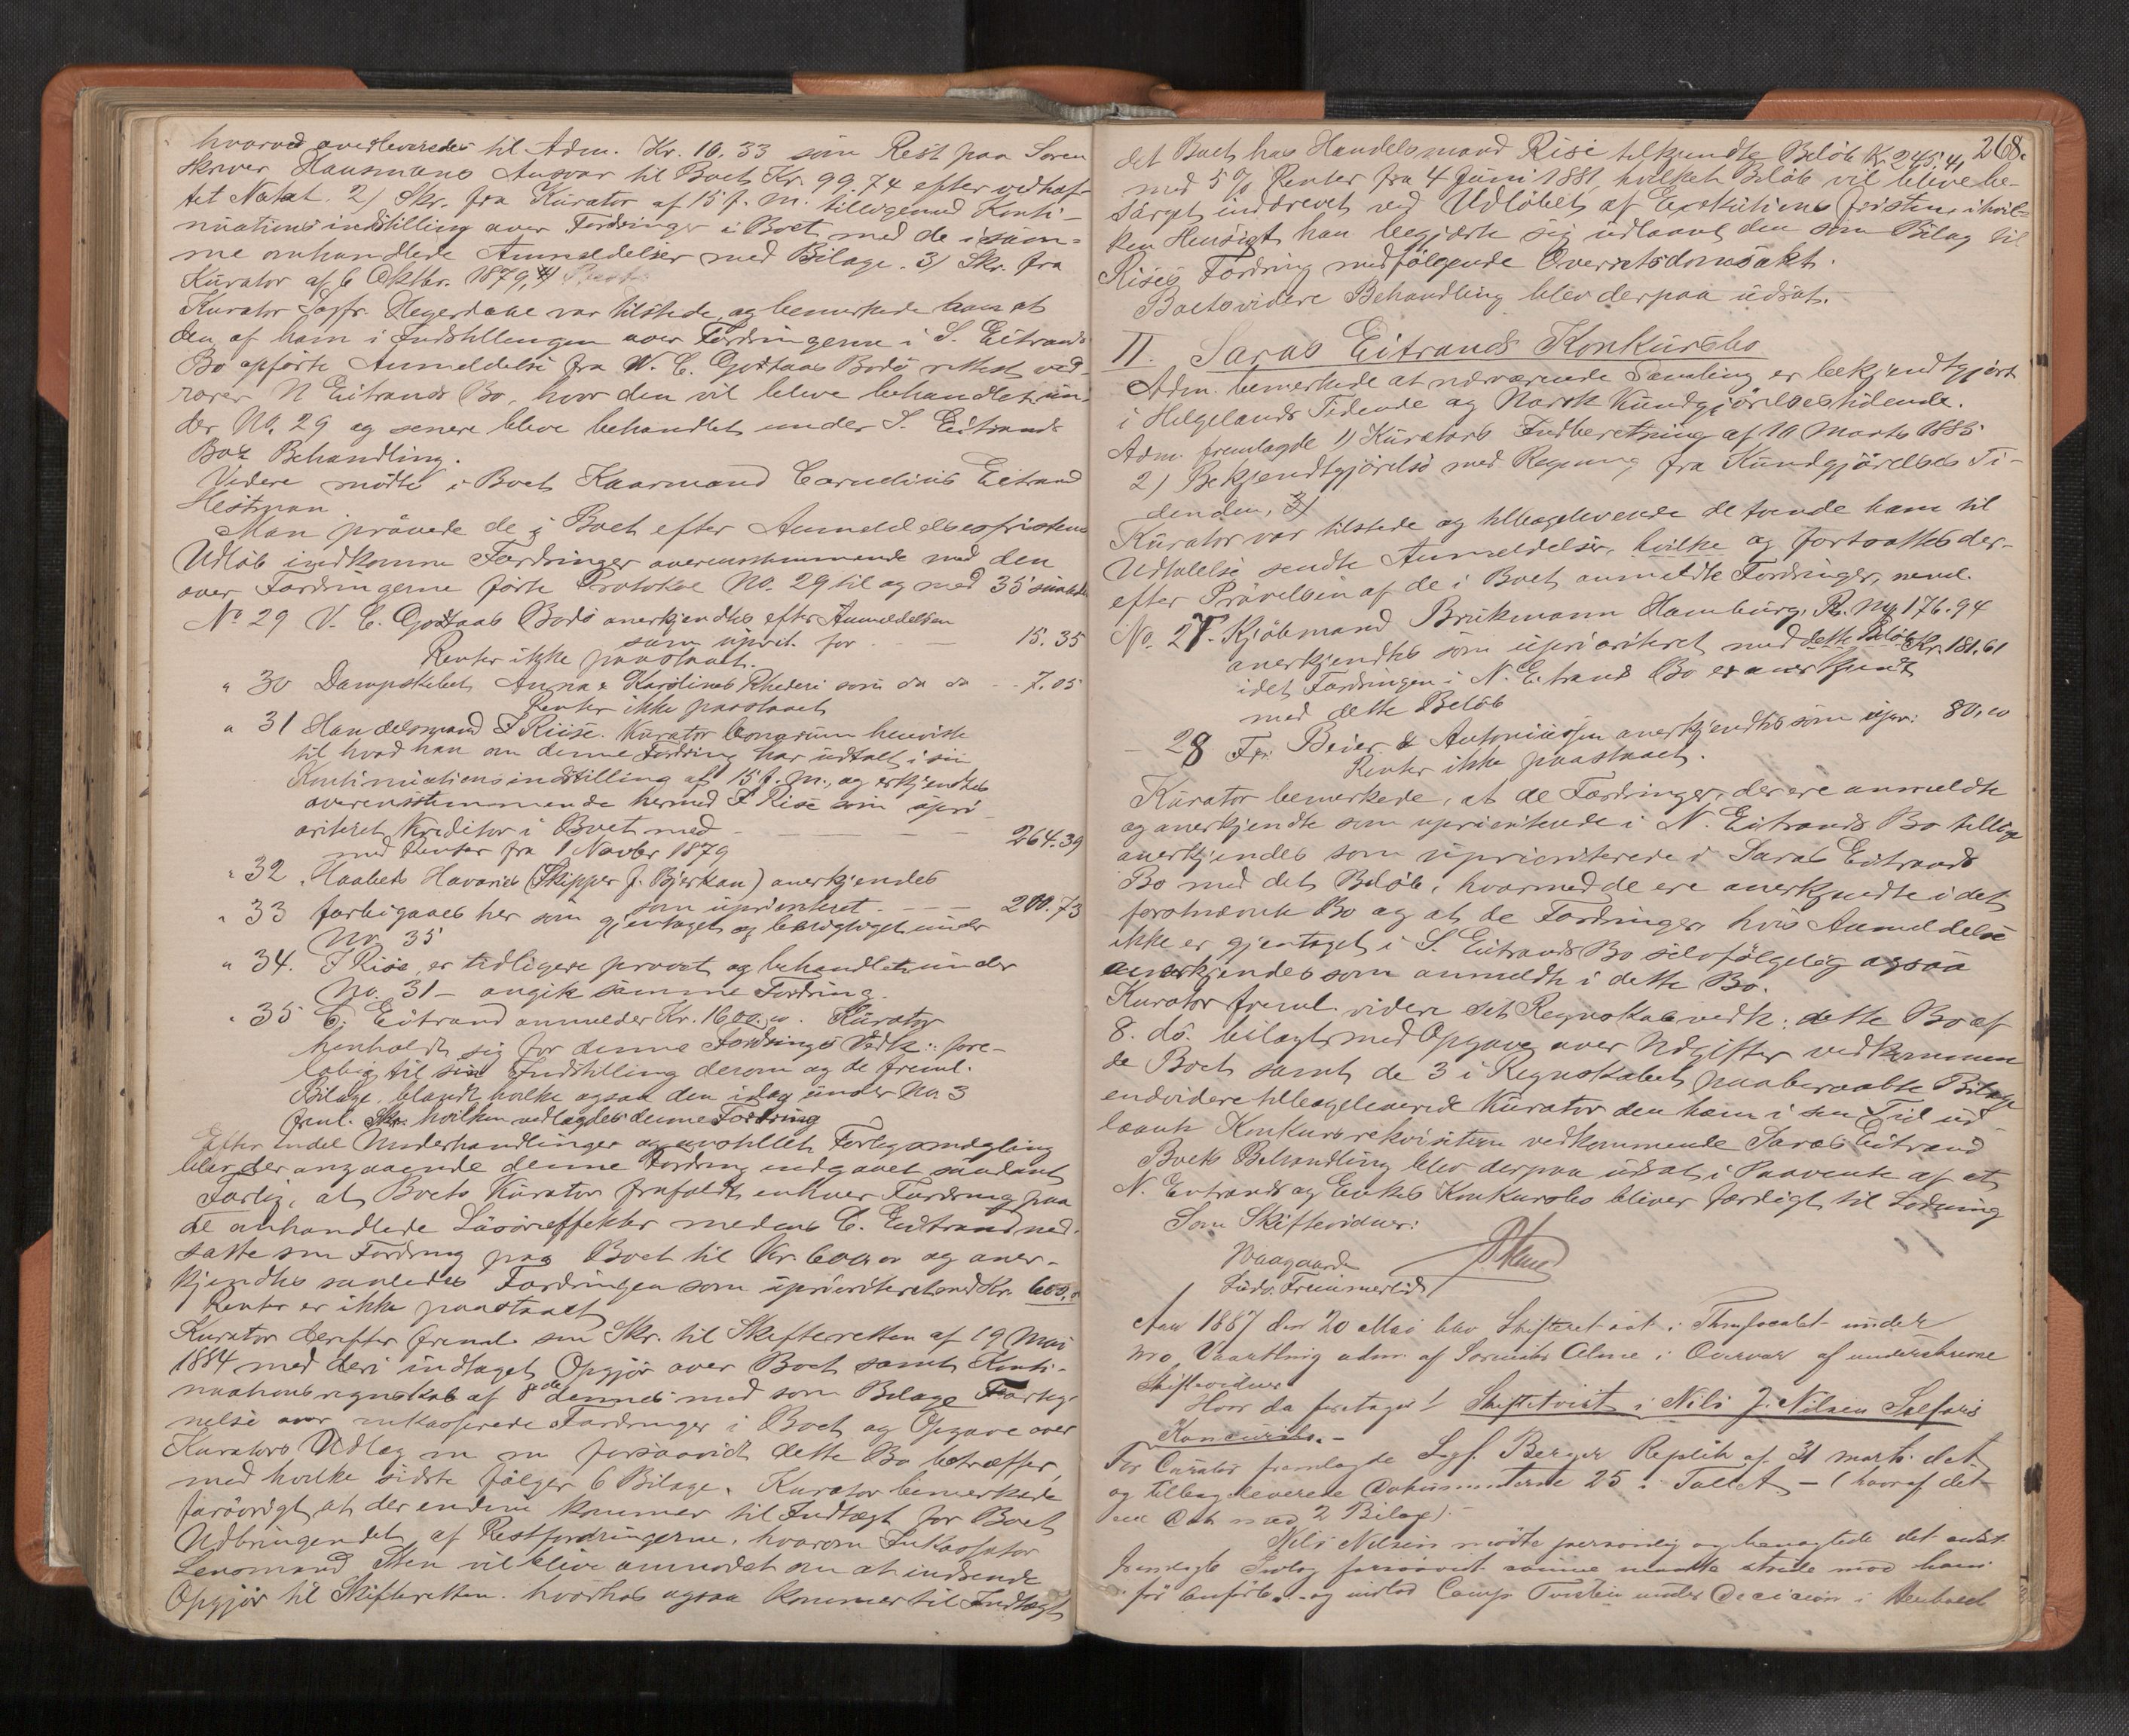 hvorved overleveredes til Adm. Kr. 10.33 som Rest paa Soren
skriver Hausmans Ansvar til Boet Kr. 99.74 efter vedhæf-
tet Notat. 2) Skr. fra Kurator af 15 f. M. tilligemed Konti-
nuationsindstilling over Fordringer i Boet med de i sam-
me omhandlede Anmeldelser med Bilage. 3) Skr. fra
Kurator af 6 Oktbr. 1879,
Kurator Sagfr. Hegerdahl var tilstede, og bemærkede han at
den af ham i Indstillingen over Fordringerne i S. Eitrands
Bo opførte Anmeldelse fra N. C. Godtaas Bodø rettest ved-
rører N Eitrands Bo, hvor den vil bleve behandlet un-
der No. 29 og senere bleve behandlet under S. Eitrands
Bos Behandling.
Videre mødte i Boet Kaarmand Cornelius Eitrand
Hestman
Man prøvede de i Boet efter Anmeldelsesfristens
Udløb indkomne Fordringer overensstemmende med den
over Fordringerne førte Protokol No. 29 til og med 35 saaledes
No 29 V. C. Godtaas Bodø anerkjendtes efter Anmeldelsen
som uprit. for — 15.35
Renter ikke paastaaet.
" 30 Dampskibet Anna & Karolines Rhederi som da da - - 7.05
Renter ikke paastaaet
" 31 Handelsmand J Riise. Kurator bonorum henviste
til hvad han om denne Fordring har udtalt i sin
Kontinuationsindstilling af 15 f. M., og erkjendtes
overensstemmende hermed J Rise som upri-
oriteret Kreditor i Boet med — 264.39
med Renter fra 1 Novbr 1879
" 32 Haabets Havaries (Skipper J. Bjerkan) anerkjendes
som uprioriteret — 200.73
" 33 forbigaaes her som gjentaget og berigtiget under
No. 35
" 34. J Rise er tidligere prøvet og behandlet under
No. 31 — angik samme Fordring.
" 35 C. Eitrand anmelder Kr. 1600.00. Kurator
henholdt sig for denne Fordrings Vedk: fore-
løbig til sin Indstilling derom og de freml.
Bilage, blandt hvilke ogsaa den idag under No. 3
freml. Skr. hvilken vedlagdes denne Fordring
Efter endel Underhandlinger og anstillet Forligsmægling
blev der angaaende denne Fordring indgaaet saadant
Forlig, at Boets Kurator frafaldt enhver Fordring paa
de omhandlede Løsøreffekter medens C. Eitrand ned-
satte sin Fordring paa Boet til Kr. 600.00 og aner-
kjendtes saaledes Fordringen som uprioriteret med Kr. 600.00
Renter er ikke paastaaet
Kurator derefter freml. sin Skr. til Skifteretten af 19 Mai
1884 med deri indtaget Opgjør over Boet samt Konti-
nuationsregnskab af 8de dennes med som Bilage Forteg-
nelse over inkasserede Fordringer i Boet og Opgave over
Kurators Udlæg m m forsaavidt dette Bo betræffer,
med hvilke sidste følger 6 Bilage. Kurator bemærkede
forøvrigt, at der endnu kommer til Indtægt for Boet
Udbringendet af Restfordringerne, hvorom Inkassator
Lensmand Sten vil bleve anmodet om at indsende
Opgjør til Skifteretten. hvorhos ogsaa kommer til Indtægt
268.
det Boet hos Handelsmand Rise tilkjendte Beløb Kr 245,41
med 5 % Renter fra 4 Juni 1881, hvilket Beløb vil bleve be-
sørget inddrevet ved Udløbet af Exekutionsfristen, i hvil-
ken Hensigt han begjærte sig udlaant den som Bilag til
Rises Fordring medfølgende Overretsdomsakt.
Boets videre Behandling blev derpaa udsat.
II. Saras Eitrands Konkursbo
Adm. bemerkede at nærværende Samling er bekjendtgjort
i Helgelands Tidende og Norsk Kundgjørelsestidende.
Adm. fremlagde 1) Kurators Indberetning af 10 Marts 1885
2) Bekjendtgjørelse med Regning fra Kundgjørelses Ti-
denden, 3)
Kurator var tilstede og tilbageleverede de tvende ham til
Udtalelse sendte Anmeldelser, hvilke og fortsattes der-
efter Prøvelsen af de i Boet anmeldte Fordringer, neml.
No. 27. Kjøbmand Brükmann Hamburg, R. My 176.94
anerkjendtes som uprioriteret med dette Beløb Kr. 181,61
idet Fordringen i N. Eitrands Bo er anerkjendt
med dette Beløb
— 28 Fr. Beier & Antoniussen anerkjendtes som upr: 80,00
Renter ikke paastaaet.
Kurator bemerkede, at de Fordringer, der ere anmeldte
og anerkjendte som uprioriterede i N. Eitrands Bo tillige
anerkjendes som uprioriterede i Saras Eitrands
Bo med det Beløb, hvormed de ere anerkjendte i det
førstnævnte Bo og at de Fordringer, hvis Anmeldelse
ikke er gjentaget i S. Eitrands Bo selvfølgelig ogsaa
anerkjendes som anmeldt i dette Bo.
Kurator freml. videre sit Regnskab vedk: dette Bo af
8. ds. bilagt med Opgave over Udgifter vedkommen
de Boet samt de 3 i Regnskabet paaberaabte Bilage
endvidere tilbageleverede Kurator den ham i sin Tid ud-
laante Konkursrekvisition vedkommende Saras Eitrand
Boets Behandling blev derpaa udsat i Paavente af at
N. Eitrands og Enkes Konkursbo bliver færdigt til Lodning
Som Skiftevidner:
Waagaarde
Ludv. Freimerlid
Aar 1887 den 20 Mai blev Skifteret sat i Thinglocalet under
Skiftevidner
Hvor da foretages 1 Skiftetvist i Nils J. Nilsen Selfors
Konkursbo. -
For Curator fremlagde Sagf. Berger Replik af 31 marts. det.
og tilbageleverede Dokumenterne 25 i Tallet — (hvoraf det
med 2 Bilage).
Nils Nilsen mødte personlig og benægtede det sidst
fremlagte Indlæg forsaavidt samme maatte stride mod hans
før anførte og indlod Camp Tvisten under Decision i Henhold